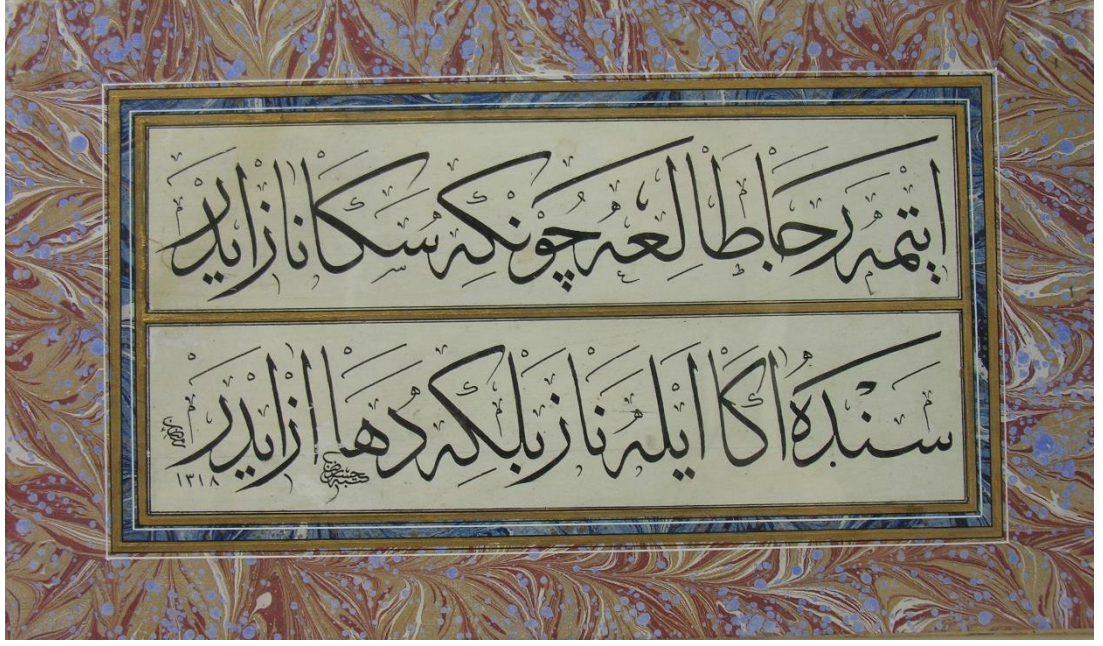 ايتمه رجا طالعه چونكه سكا ناز ايدر
سنده اكا ايله ناز بلكه دها از ايدر
١٣١٨